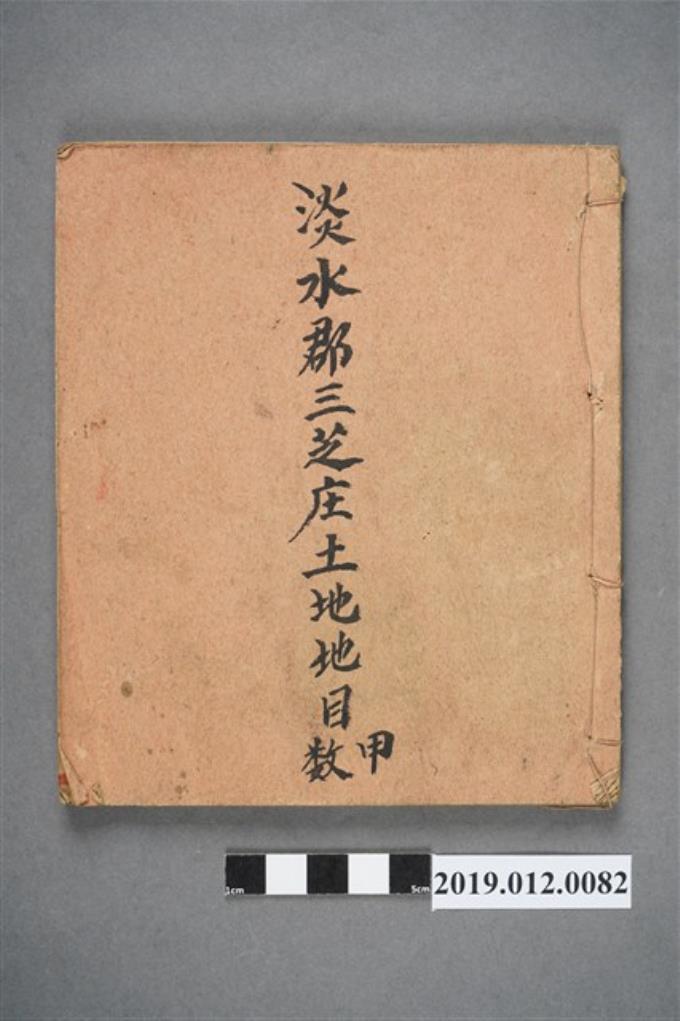 淡水郡三芝庄土地地目甲数
1cm 5cm
2019.012.0082